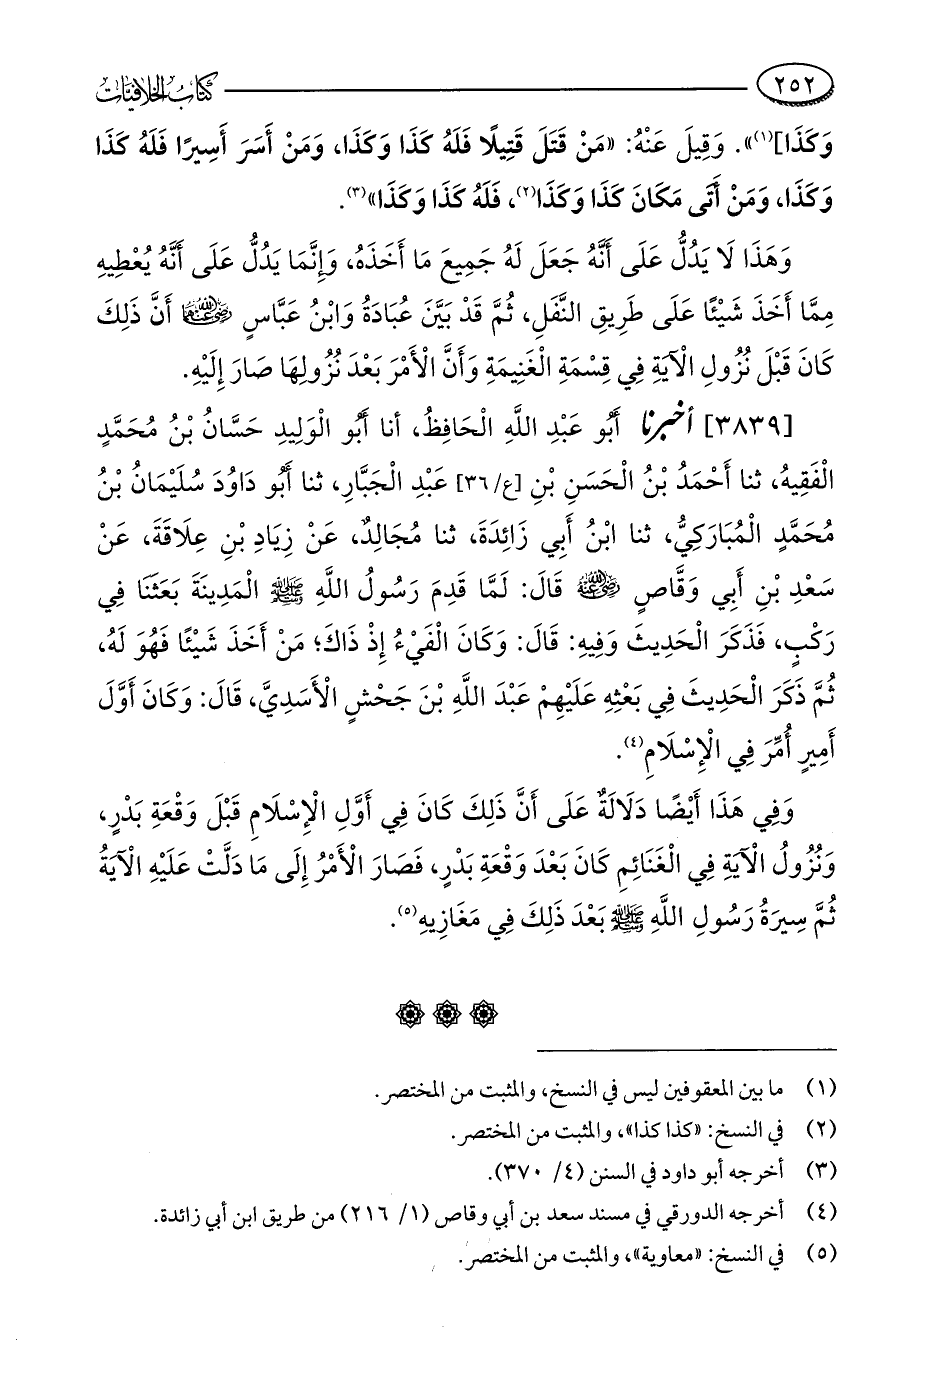 ٢٥٢
كتاب الخلافيات
وَكَذَا](١)». وَقِيلَ عَنْهُ: «مَنْ قَتَلَ قَتِيلًا فَلَهُ كَذَا وَكَذَا، وَمَنْ أَسَرَ أَسِيرًا فَلَهُ كَذَا
وَكَذَا، وَمَنْ أَتَى مَكَانَ كَذَا وَكَذَا(٢)، فَلَهُ كَذَا وَكَذَا»(٣).
وَهَذَا لَا يَدُلُّ عَلَى أَنَّهُ جَعَلَ لَهُ جَمِيعَ مَا أَخَذَهُ، وَإِنَّمَا يَدُلُّ عَلَى أَنَّهُ يُعْطِيهِ
مِمَّا أَخَذَ شَيْئًا عَلَى طَرِيقِ النَّفَلِ، ثُمَّ قَدْ بَيَّنَ عُبَادَةُ وَابْنُ عَبَّاسٍ رضي الله عنهما أَنَّ ذَلِكَ
كَانَ قَبْلَ نُزُولِ الْآيَةِ فِي قِسْمَةِ الْغَنِيمَةِ وَأَنَّ الْأَمْرَ بَعْدَ نُزُولِهَا صَارَ إِلَيْهِ.
[٣٨٣٩] أخبرنا أَبُو عَبْدِ اللَّهِ الْحَافِظُ، أنا أَبُو الْوَلِيدِ حَسَّانُ بْنُ مُحَمَّدٍ
الْفَقِيهُ، ثنا أَحْمَدُ بْنُ الْحَسَنِ بْنِ [ع/٣٦] عَبْدِ الْجَبَّارِ، ثنا أَبُو دَاوُدَ سُلَيْمَانُ بْنُ
مُحَمَّدٍ الْمُبَارَكِيُّ، ثنا ابْنُ أَبِي زَائِدَةَ، ثنا مُجَالِدٌ، عَنْ زِيَادِ بْنِ عِلَاقَةَ، عَنْ
سَعْدِ بْنِ أَبِي وَقَّاصٍ رضي الله عنه قَالَ: لَمَّا قَدِمَ رَسُولُ اللَّهِ ﷺ الْمَدِينَةَ بَعَثَنَا فِي
رَكْبٍ، فَذَكَرَ الْحَدِيثَ وَفِيهِ: قَالَ: وَكَانَ الْفَيْءُ إِذْ ذَاكَ؛ مَنْ أَخَذَ شَيْئًا فَهُوَ لَهُ،
ثُمَّ ذَكَرَ الْحَدِيثَ فِي بَعْثِهِ عَلَيْهِمْ عَبْدَ اللَّهِ بْنَ جَحْشٍ الْأَسَدِيَّ، قَالَ: وَكَانَ أَوَّلَ
أَمِيرٍ أُمِّرَ فِي الْإِسْلَامِ(٤).
وَفِي هَذَا أَيْضًا دَلَالَةٌ عَلَى أَنَّ ذَلِكَ كَانَ فِي أَوَّلِ الْإِسْلَامِ قَبْلَ وَقْعَةِ بَدْرٍ،
وَنُزُولُ الْآيَةِ فِي الْغَنَائِمِ كَانَ بَعْدَ وَقْعَةِ بَدْرٍ، فَصَارَ الْأَمْرُ إِلَى مَا دَلَّتْ عَلَيْهِ الْآيَةُ
ثُمَّ سِيرَةُ رَسُولِ اللَّهِ ﷺ بَعْدَ ذَلِكَ فِي مَغَازِيهِ(٥).
(١) ما بين المعقوفين ليس في النسخ، والمثبت من المختصر.
(٢) في النسخ: «كذا كذا»، والمثبت من المختصر.
(٣) أخرجه أبو داود في السنن (٤/ ٣٧٠).
(٤) أخرجه الدورقي في مسند سعد بن أبي وقاص (١/ ٢١٦) من طريق ابن أبي زائدة.
(٥) في النسخ: «معاوية»، والمثبت من المختصر.